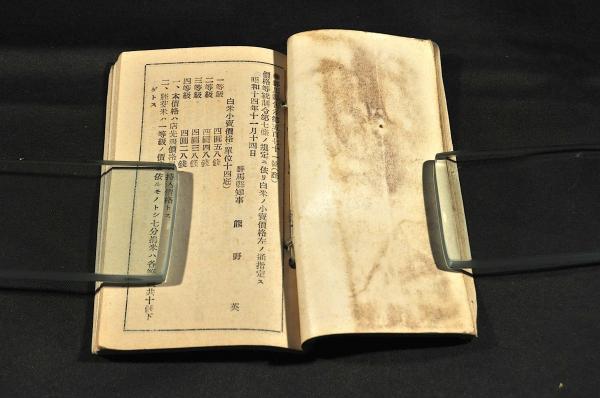 價格等統制令第七條ノ規定ニ依リ白米ノ小賣價格左ノ通指定ス
昭和十四年十一月十四日
群馬縣知事 熊野英
白米小賣價格(單位十四瓩)
一等級 四圓五八錢
二等級 四圓四八錢
三等級 四圓三八錢
四等級 四圓二八錢
一、本價格ハ店先渡價格
二、胚芽米ハ一等級ノ價格 依ルモノトシ七分搗米ハ各等 共十錢下
ゲトス